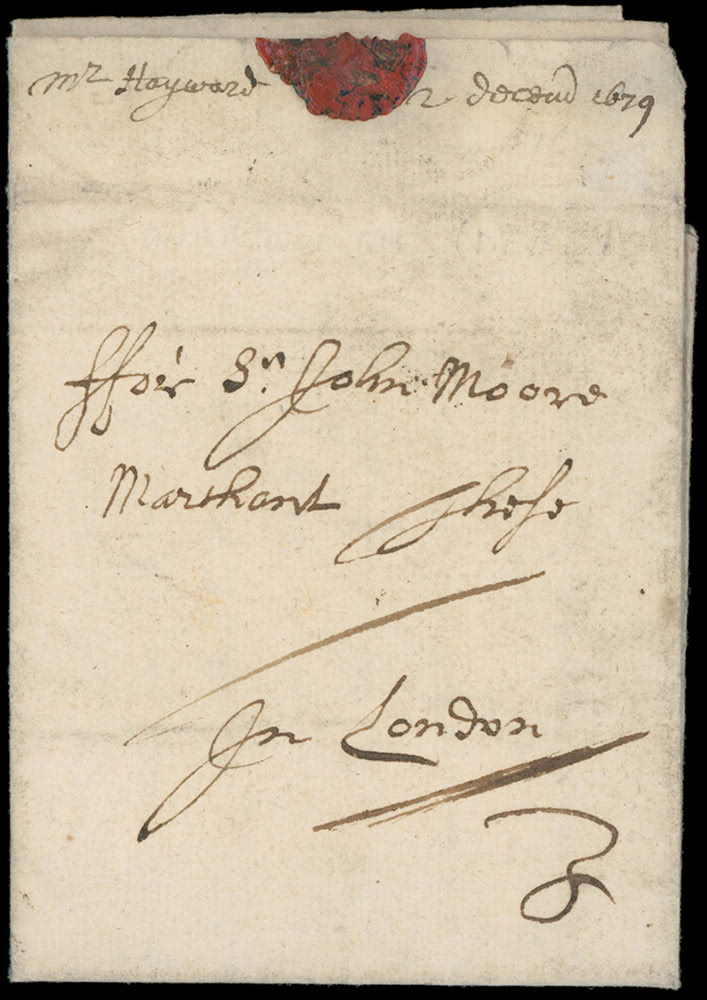 Mr Hayward 2 decemb 1679
ffor Sr John Moore
Marchant these
In London